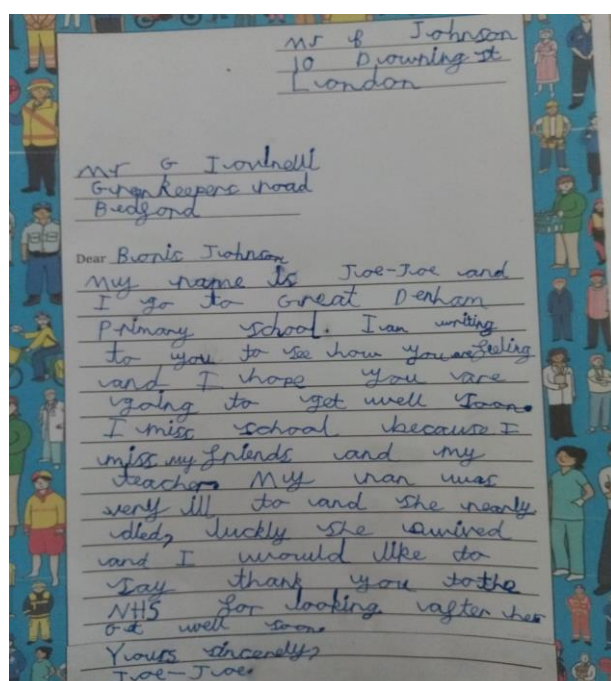 Mr B Johnson
10 Downing st
London
Mr G
Greenkeepers road
Bedford
Dear Boris Johnson
My name is Joe-Joe and
I go to Great Denham
Primary school. I am writing
to you to see how you are feeling
and I hope you are
going to get well soon.
I miss school because I
miss my friends and my
teacher. My nan was
very ill to and she nearly
died, luckly she
and I would like to
say thank you to the
NHS for looking after her
Get well soon.
Yours sincerely,
Joe-Joe.